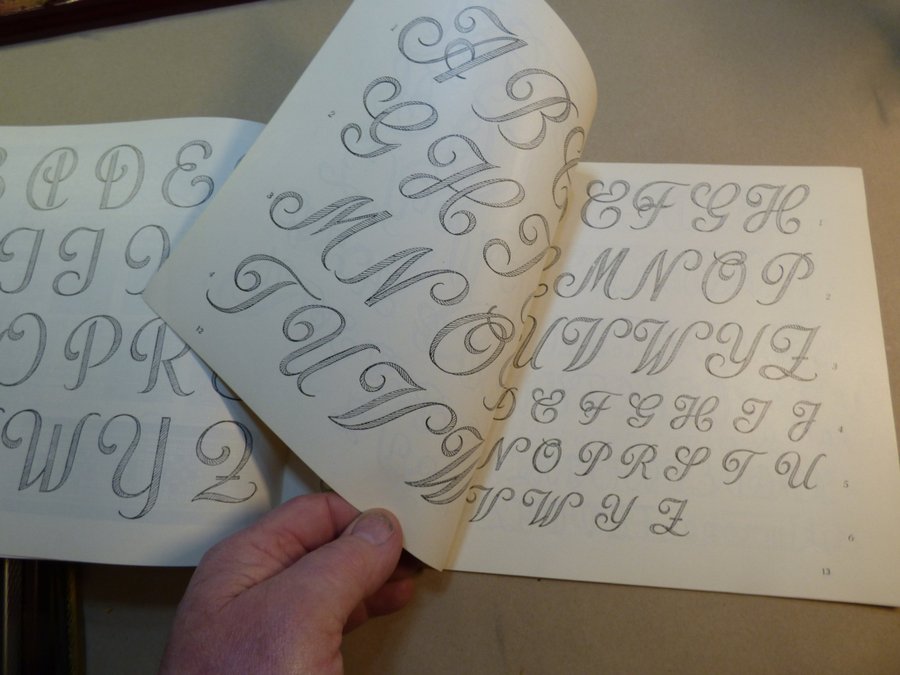 C P D E
I J
O P R
W Y Z
A B C
G H I
2
M N O
3
T U V W
4
12
E F G H 1
M N O P 2
U V W Y Z 3
D E F G H I J 4
N O P R S T U 5
V W Y Z 6
13